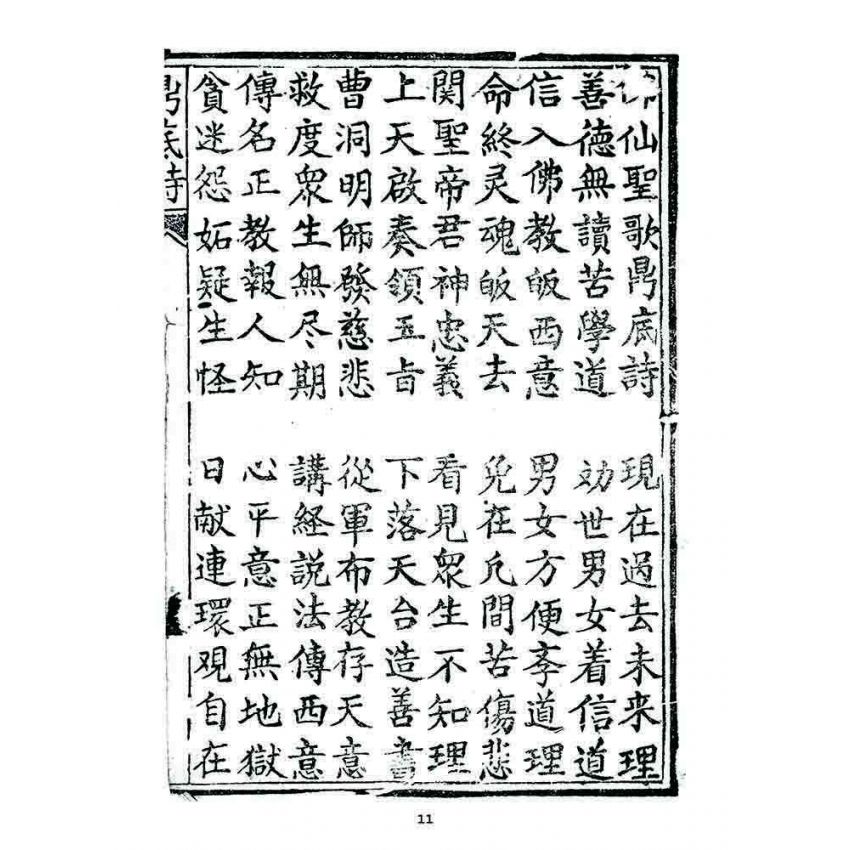 仙聖歌鼎底詩 現在過去未来理
善德無讀苦學道 効世男女着信道
信入佛教皈西意 男女方便李道理
命終灵魂皈天去 免在凢間苦傷悲
関聖帝君神忠義 看見眾生不知理
上天啟奏領玉旨 下落天台造善書
曹洞明師發慈悲 從軍布教存天意
救度眾生無尽期 講経説法傳西意
傳名正教報人知 心平意正無地獄
貪迷怨妬疑生怪 日献連環覌自在
鼎底詩
11